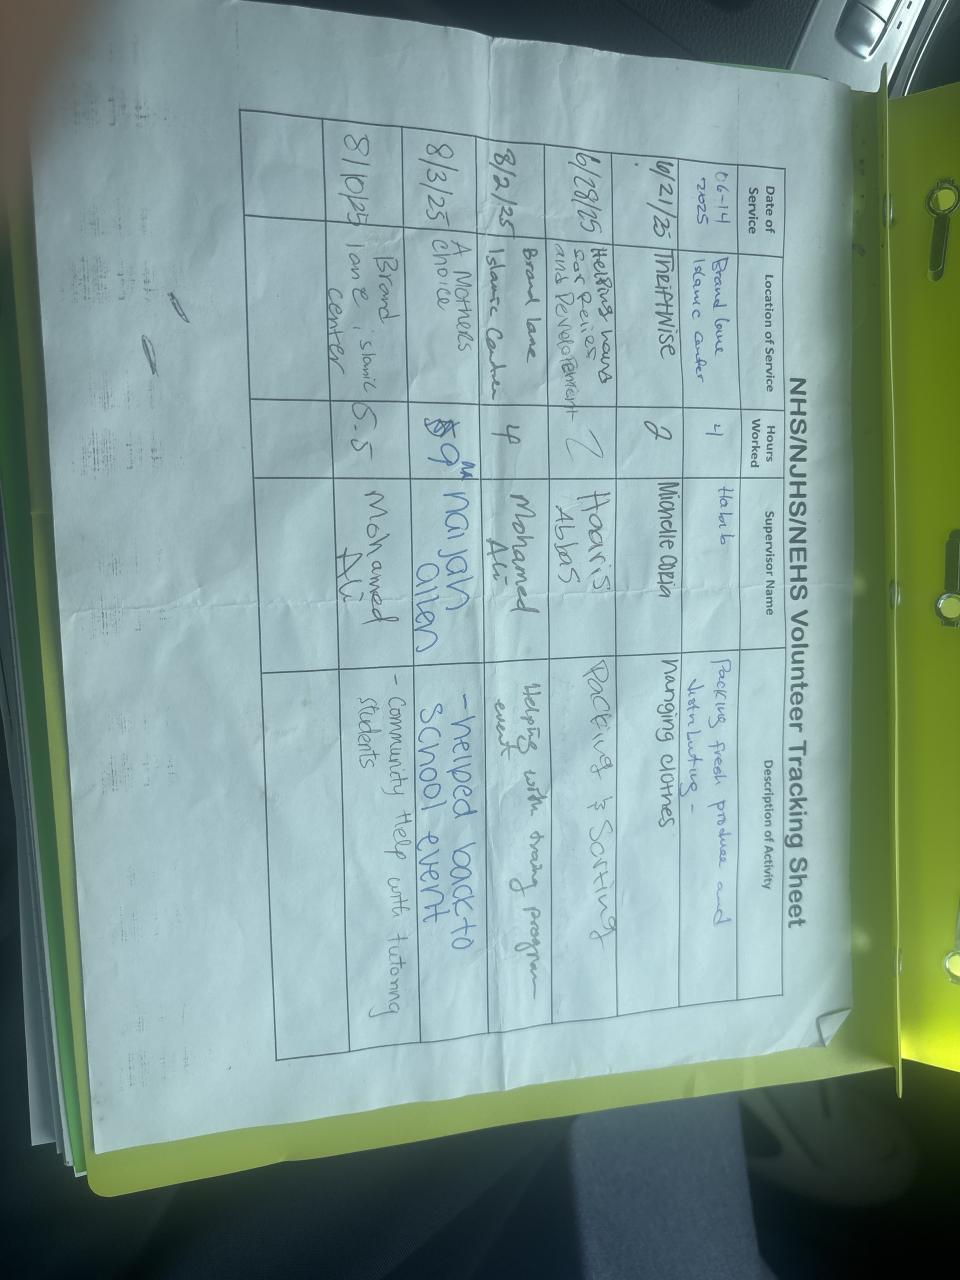 NHS/NJHS/NEHS Volunteer Tracking Sheet
Date of Service Location of Service Hours Worked Supervisor Name Description of Activity
06-14 2025 Brand lane Islamic center 4 Habib Packing fresh produce and
6/21/25 ThriftWise 2 hanging clothes
6/28/25 Helping hand for Relief and Development 2 Haaris Abbas Packing & Sorting
8/2/25 Brand lane Islamic Center 4 Mohamed Ali Helping with program event
8/3/25 A Mothers Choice 9 naijah allen - helped back to school event
8/10/25 Brand lane islamic center 5.5 Mohamed Ali - Community Help with tutoring students